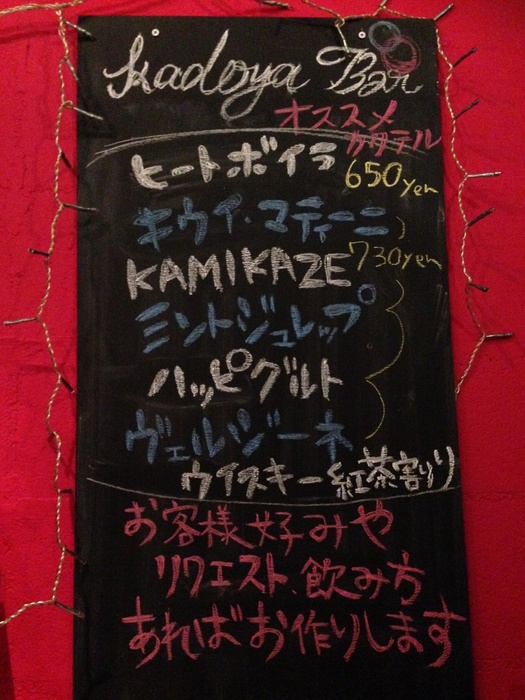 Kadoya Bar
オススメ
カクテル
ヒートボイラ
650yen
キウイ・マティーニ
KAMIKAZE 730yen
ミントジュレップ
ハッピグルト
ヴェルジーネ
ウイスキー紅茶割り
お客様好みや
リクエスト、飲み方
あればお作りします